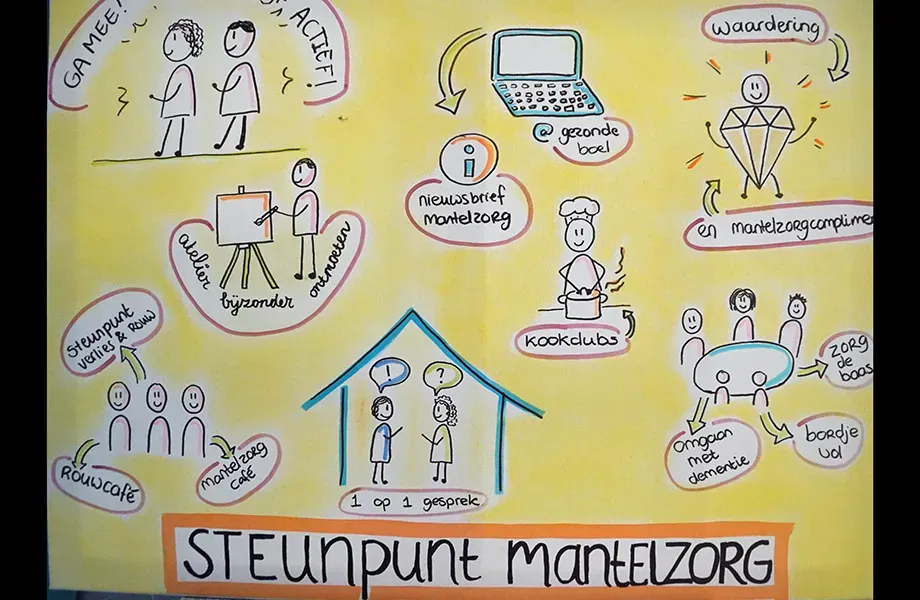 GA MEE!
ACTIEF!
waardering
@ gezonde
boel
i
nieuwsbrief
mantelzorg
en mantelzorgcomplime
atelier
bijzonder
ontmoeten
kookclubs
Steunpunt
verlies & rouw
zorg
de
baas
!
?
Rouwcafé
mantelzorg
café
omgaan
met
dementie
bordje
vol
1 op 1 gesprek
STEUNPUNT MANTELZORG